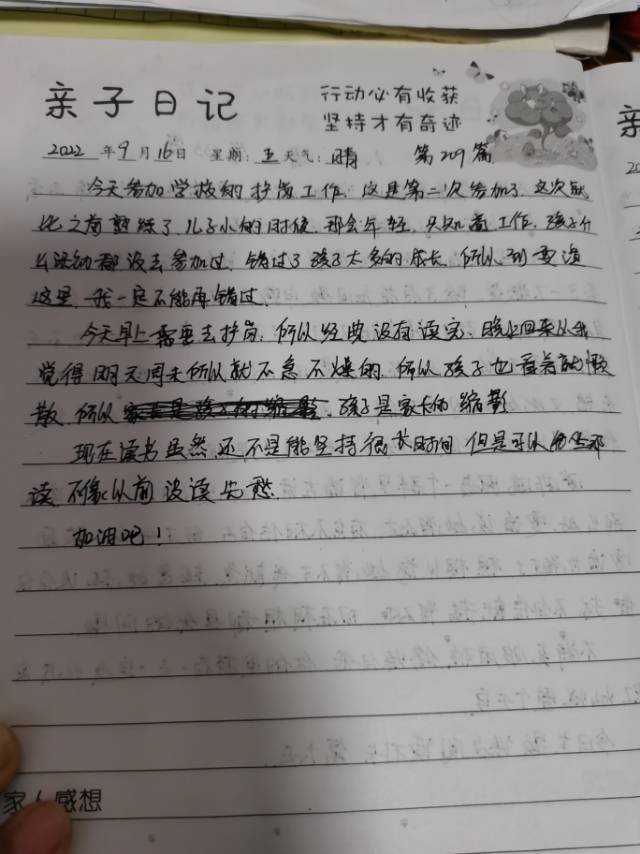 亲子日记
行动必有收获
坚持才有奇迹
2022 年 9 月 16 日 星期: 五 天气: 晴 第209篇
今天参加学校的护岗工作, 这是第二次参加了, 这次就
比之前熟练了, 儿子小的时候, 那会年轻, 只知道工作, 孩子什
么活动都没去参加过, 错过了孩子太多的成长, 所以, 到
这里, 我一定不能再错过.
今天早上需要去护岗, 所以经典没有读完, 晚上回来以我
觉得明天周末所以就不急不燥的, 所以孩子也看着就懒
散, 所以 孩子是家长的缩影
现在读书虽然还不是能坚持很长时间, 但是可以
读, 不像以前没读先愁.
加油吧!
家人感想
亲
20